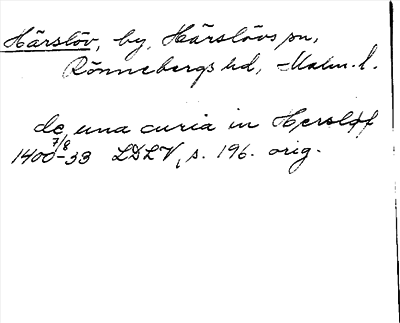 Härslöv, by, Härslövs sn,
Rönnebergs hd, Malm. l.
de una curia in Hersløff
1400 7/8 -33 LDLV, s. 196. orig.